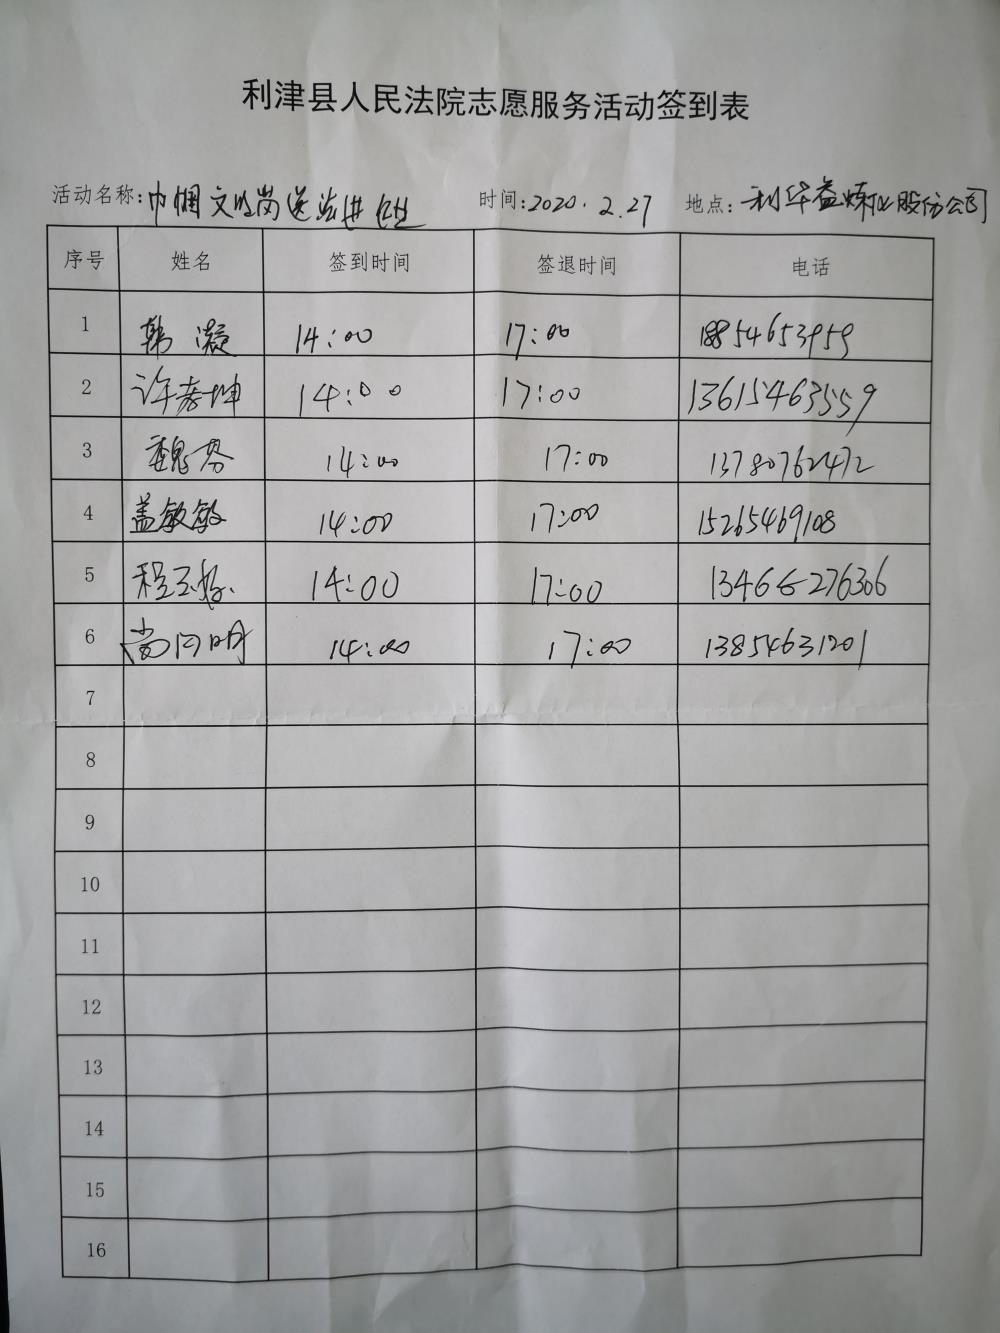 利津县人民法院志愿服务活动签到表
活动名称:巾帼文明岗送法进企业 时间:2020.2.27 地点:利华益炼化股份公司
序号 姓名 签到时间 签退时间 电话
1 韩凝 14:00 17:00 18854653959
2 许孝坤 14:00 17:00 13615463559
3 魏芬 14:00 17:00 13780762472
4 盖敏敏 14:00 17:00 15265469108
5 程玉 14:00 17:00 13466276306
6 尚同明 14:00 17:00 13854631201
7
8
9
10
11
12
13
14
15
16